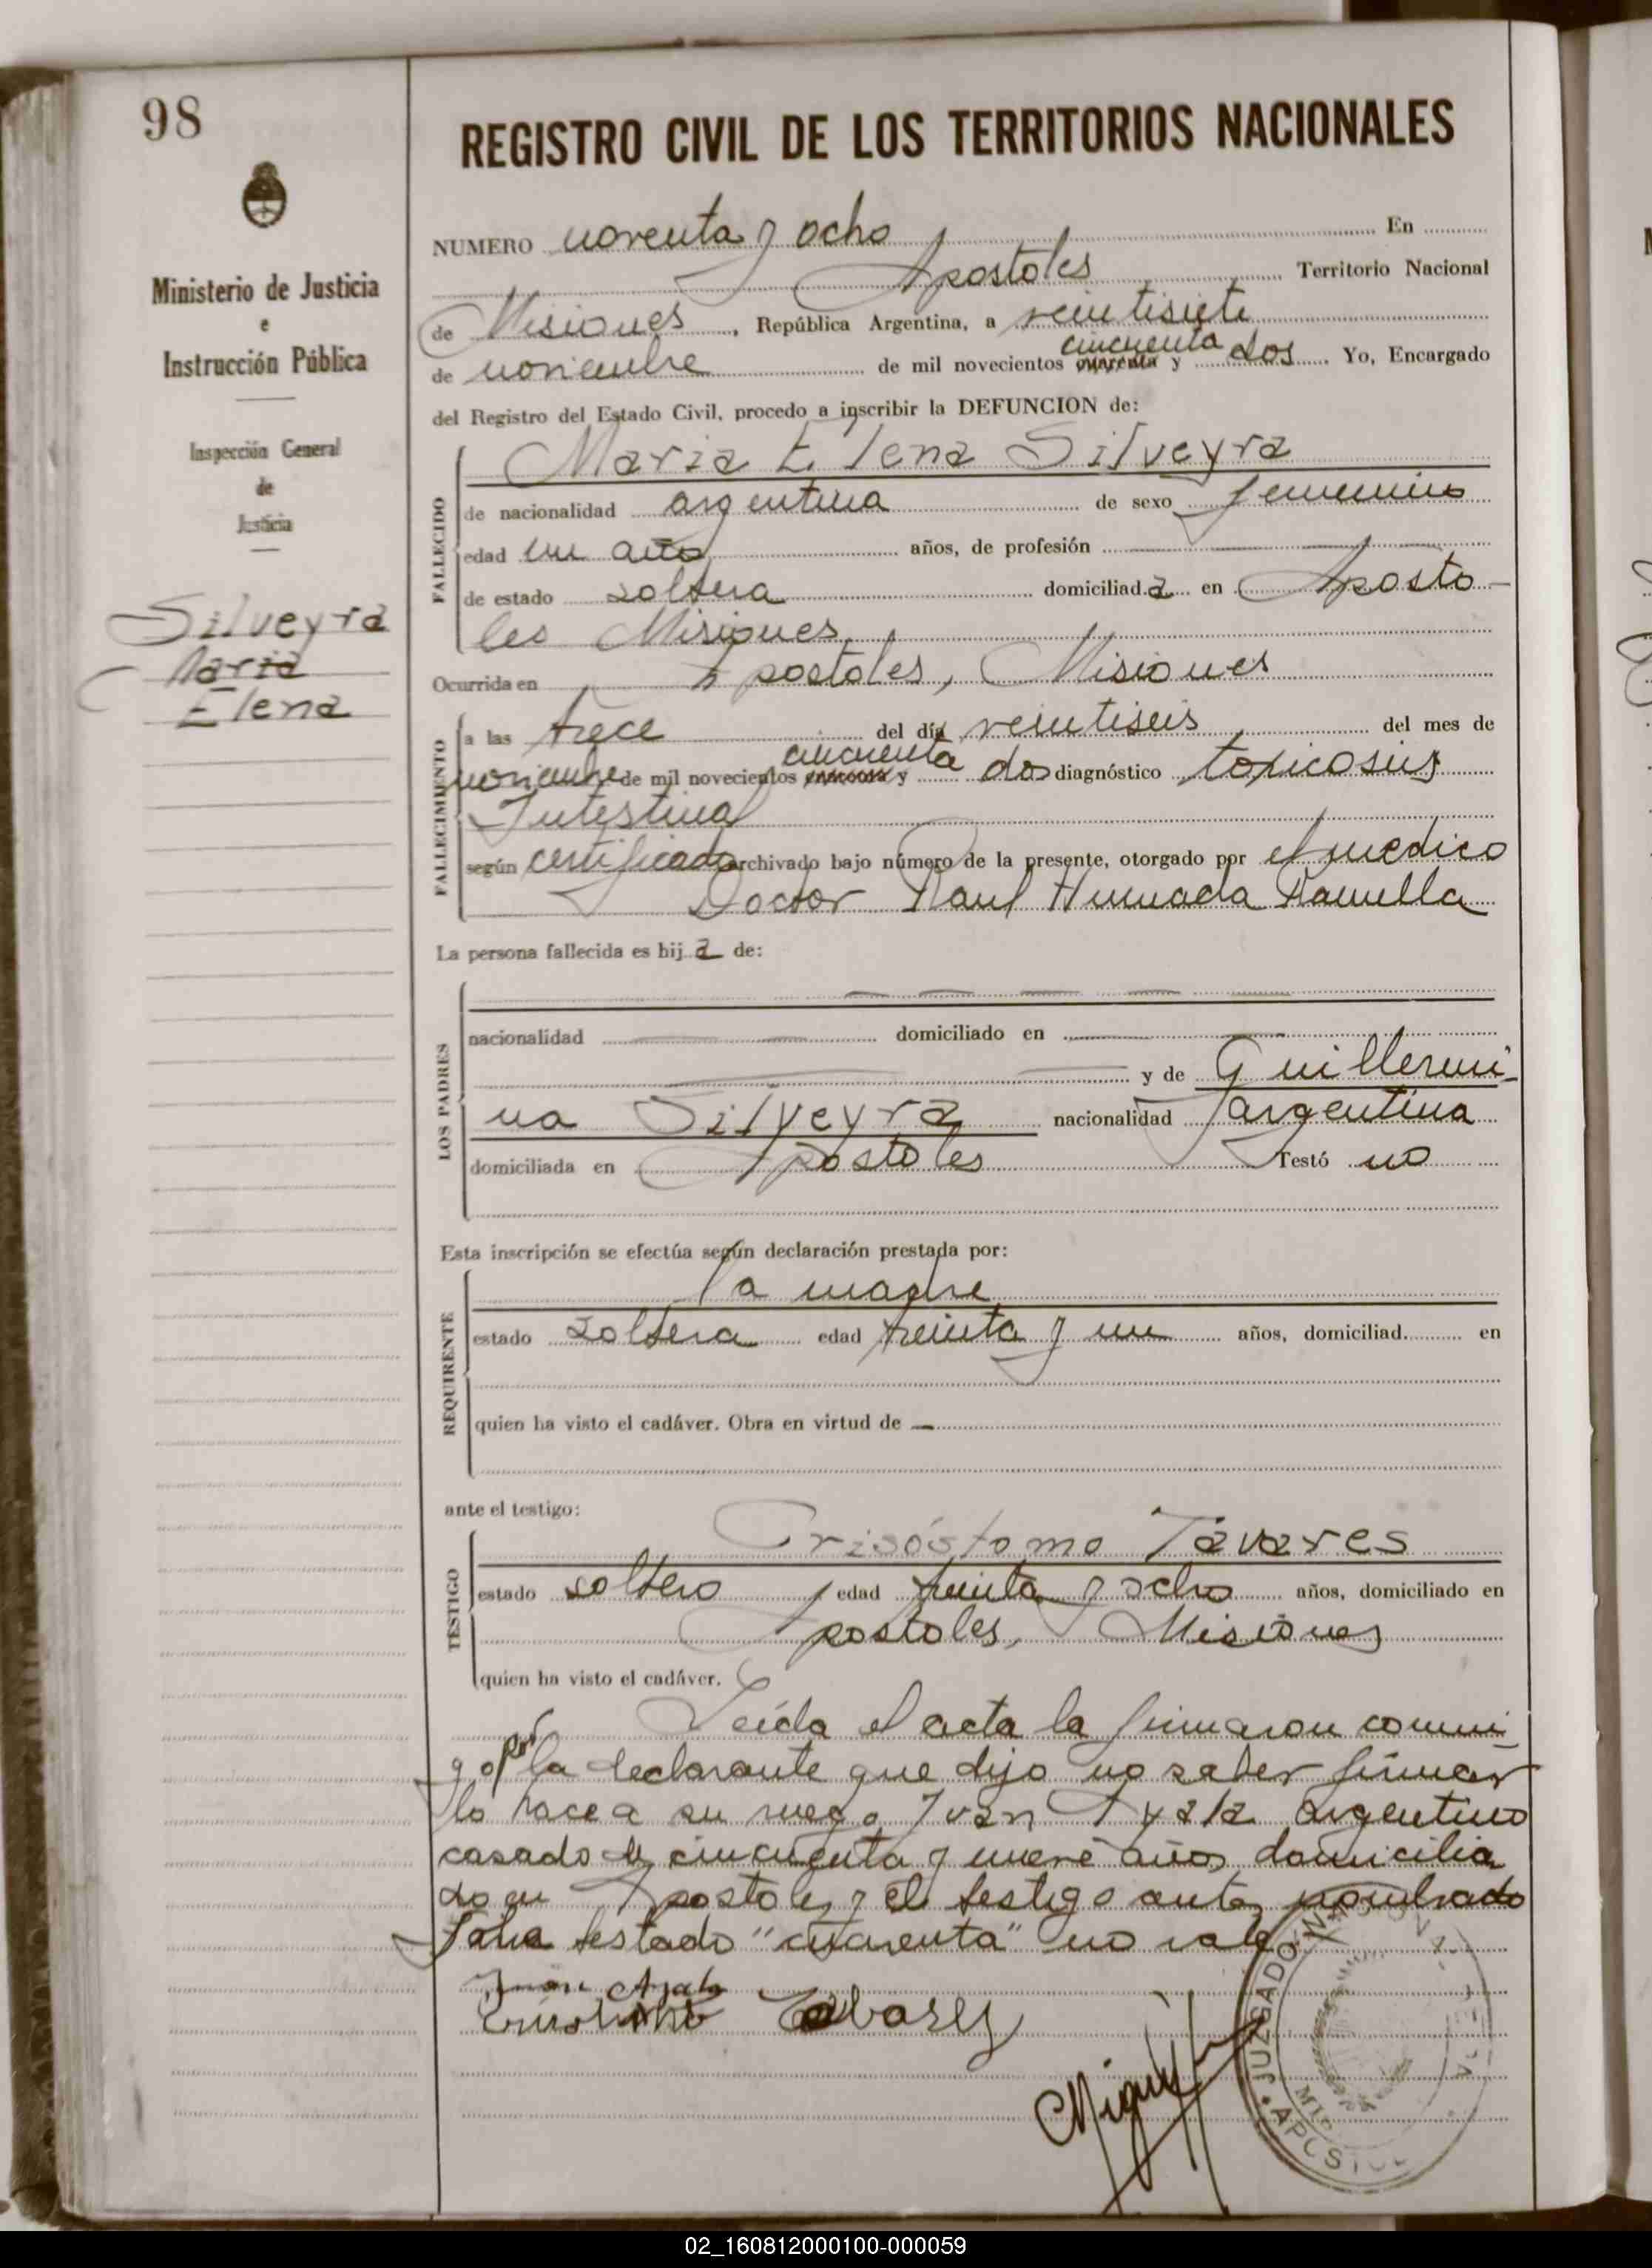 98
Ministerio de Justicia
e
Instrucción Pública
Inspección General
de
Justicia
Silveyra
Maria
Elena
REGISTRO CIVIL DE LOS TERRITORIOS NACIONALES
NUMERO noventa y ocho En
Apostoles Territorio Nacional
de Misiones, República Argentina, a veintisiete
cincuenta
de noviembre de mil novecientos cuarenta y dos. Yo, Encargado
del Registro del Estado Civil, procedo a inscribir la DEFUNCION de:
Maria Elena Silveyra
FALLECIDO
de nacionalidad argentina de sexo femenino
edad un año años, de profesión
de estado soltera domiciliada en Aposto-
les Misiones,
Ocurrida en Apostoles, Misiones
FALLECIMIENTO
a las trece del día veintiseis del mes de
cincuenta
noviembre de mil novecientos y dos diagnóstico toxicosis
Intestinal
según certificado archivado bajo número de la presente, otorgado por el medico
Doctor Raul Ramella
La persona fallecida es hija de:
LOS PADRES
nacionalidad domiciliado en
y de Guillermi-
na Silveyra nacionalidad argentina
domiciliada en Apostoles Testó no
Esta inscripción se efectúa según declaración prestada por:
la madre
REQUIRENTE
estado soltera edad treinta y un años, domiciliad en
quien ha visto el cadáver. Obra en virtud de —
ante el testigo:
Crisóstomo Tavares
TESTIGO
estado soltero edad treinta y ocho años, domiciliado en
Apostoles, Misiones
quien ha visto el cadáver.
Leída el acta la firmaron conmi-
go por la declarante que dijo no saber firmar
lo hace a su ruego Juan Ayala argentino
casado de cincuenta y nueve años domicilia
do en Apostoles y el testigo antes nombrado
testado "cuarenta" no vale
Juan Ayala
Tabarez
JUZGADO
APOSTOL
MIS
02_160812000100-000059